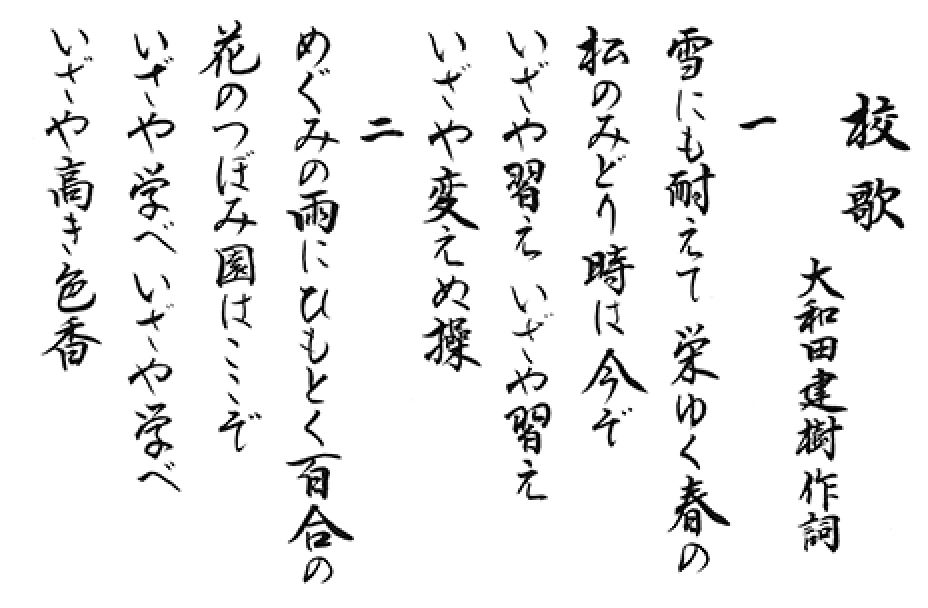 校歌
大和田建樹作詞
一
雪にも耐えて 栄ゆく春の
松のみどり時は今ぞ
いざや習え いざや習え
いざや変えぬ操
二
めぐみの雨にひもとく百合の
花のつぼみ園はここぞ
いざや学べ いざや学べ
いざや高き色香